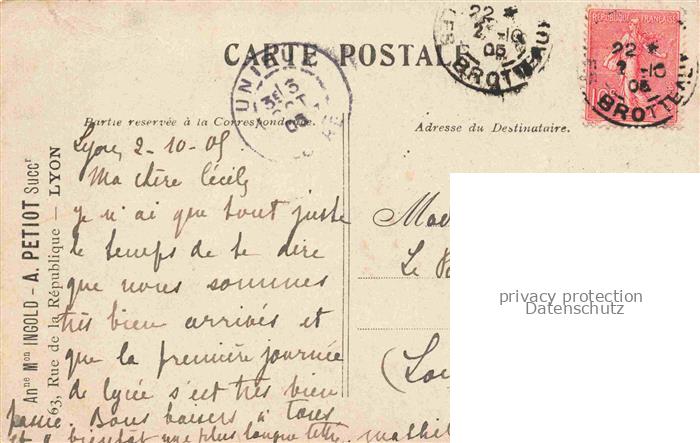 CARTE POSTALE
REPUBLIQUE FRANÇAISE
22 *
2 -10
05
BROTTEAUX
22 *
2 -10
05
BROTTEAUX
UNIEUX
3E
13
OCT
05
Partie reservée à la Correspondance.
Adresse du Destinataire.
Ane Mon INGOLD - A. PETIOT Succr
63, Rue de la République — LYON
Lyon, 2-10-05
Ma chère Cécile
je n'ai que tout juste
le temps de te dire
que nous sommes
très bien arrivés et
que la première journée
de lycée s'est très bien
passée. Bons baisers à tous
et à bientôt une plus longue lettre. Mathil
Mad
Le
(Loi
privacy protection
Datenschutz